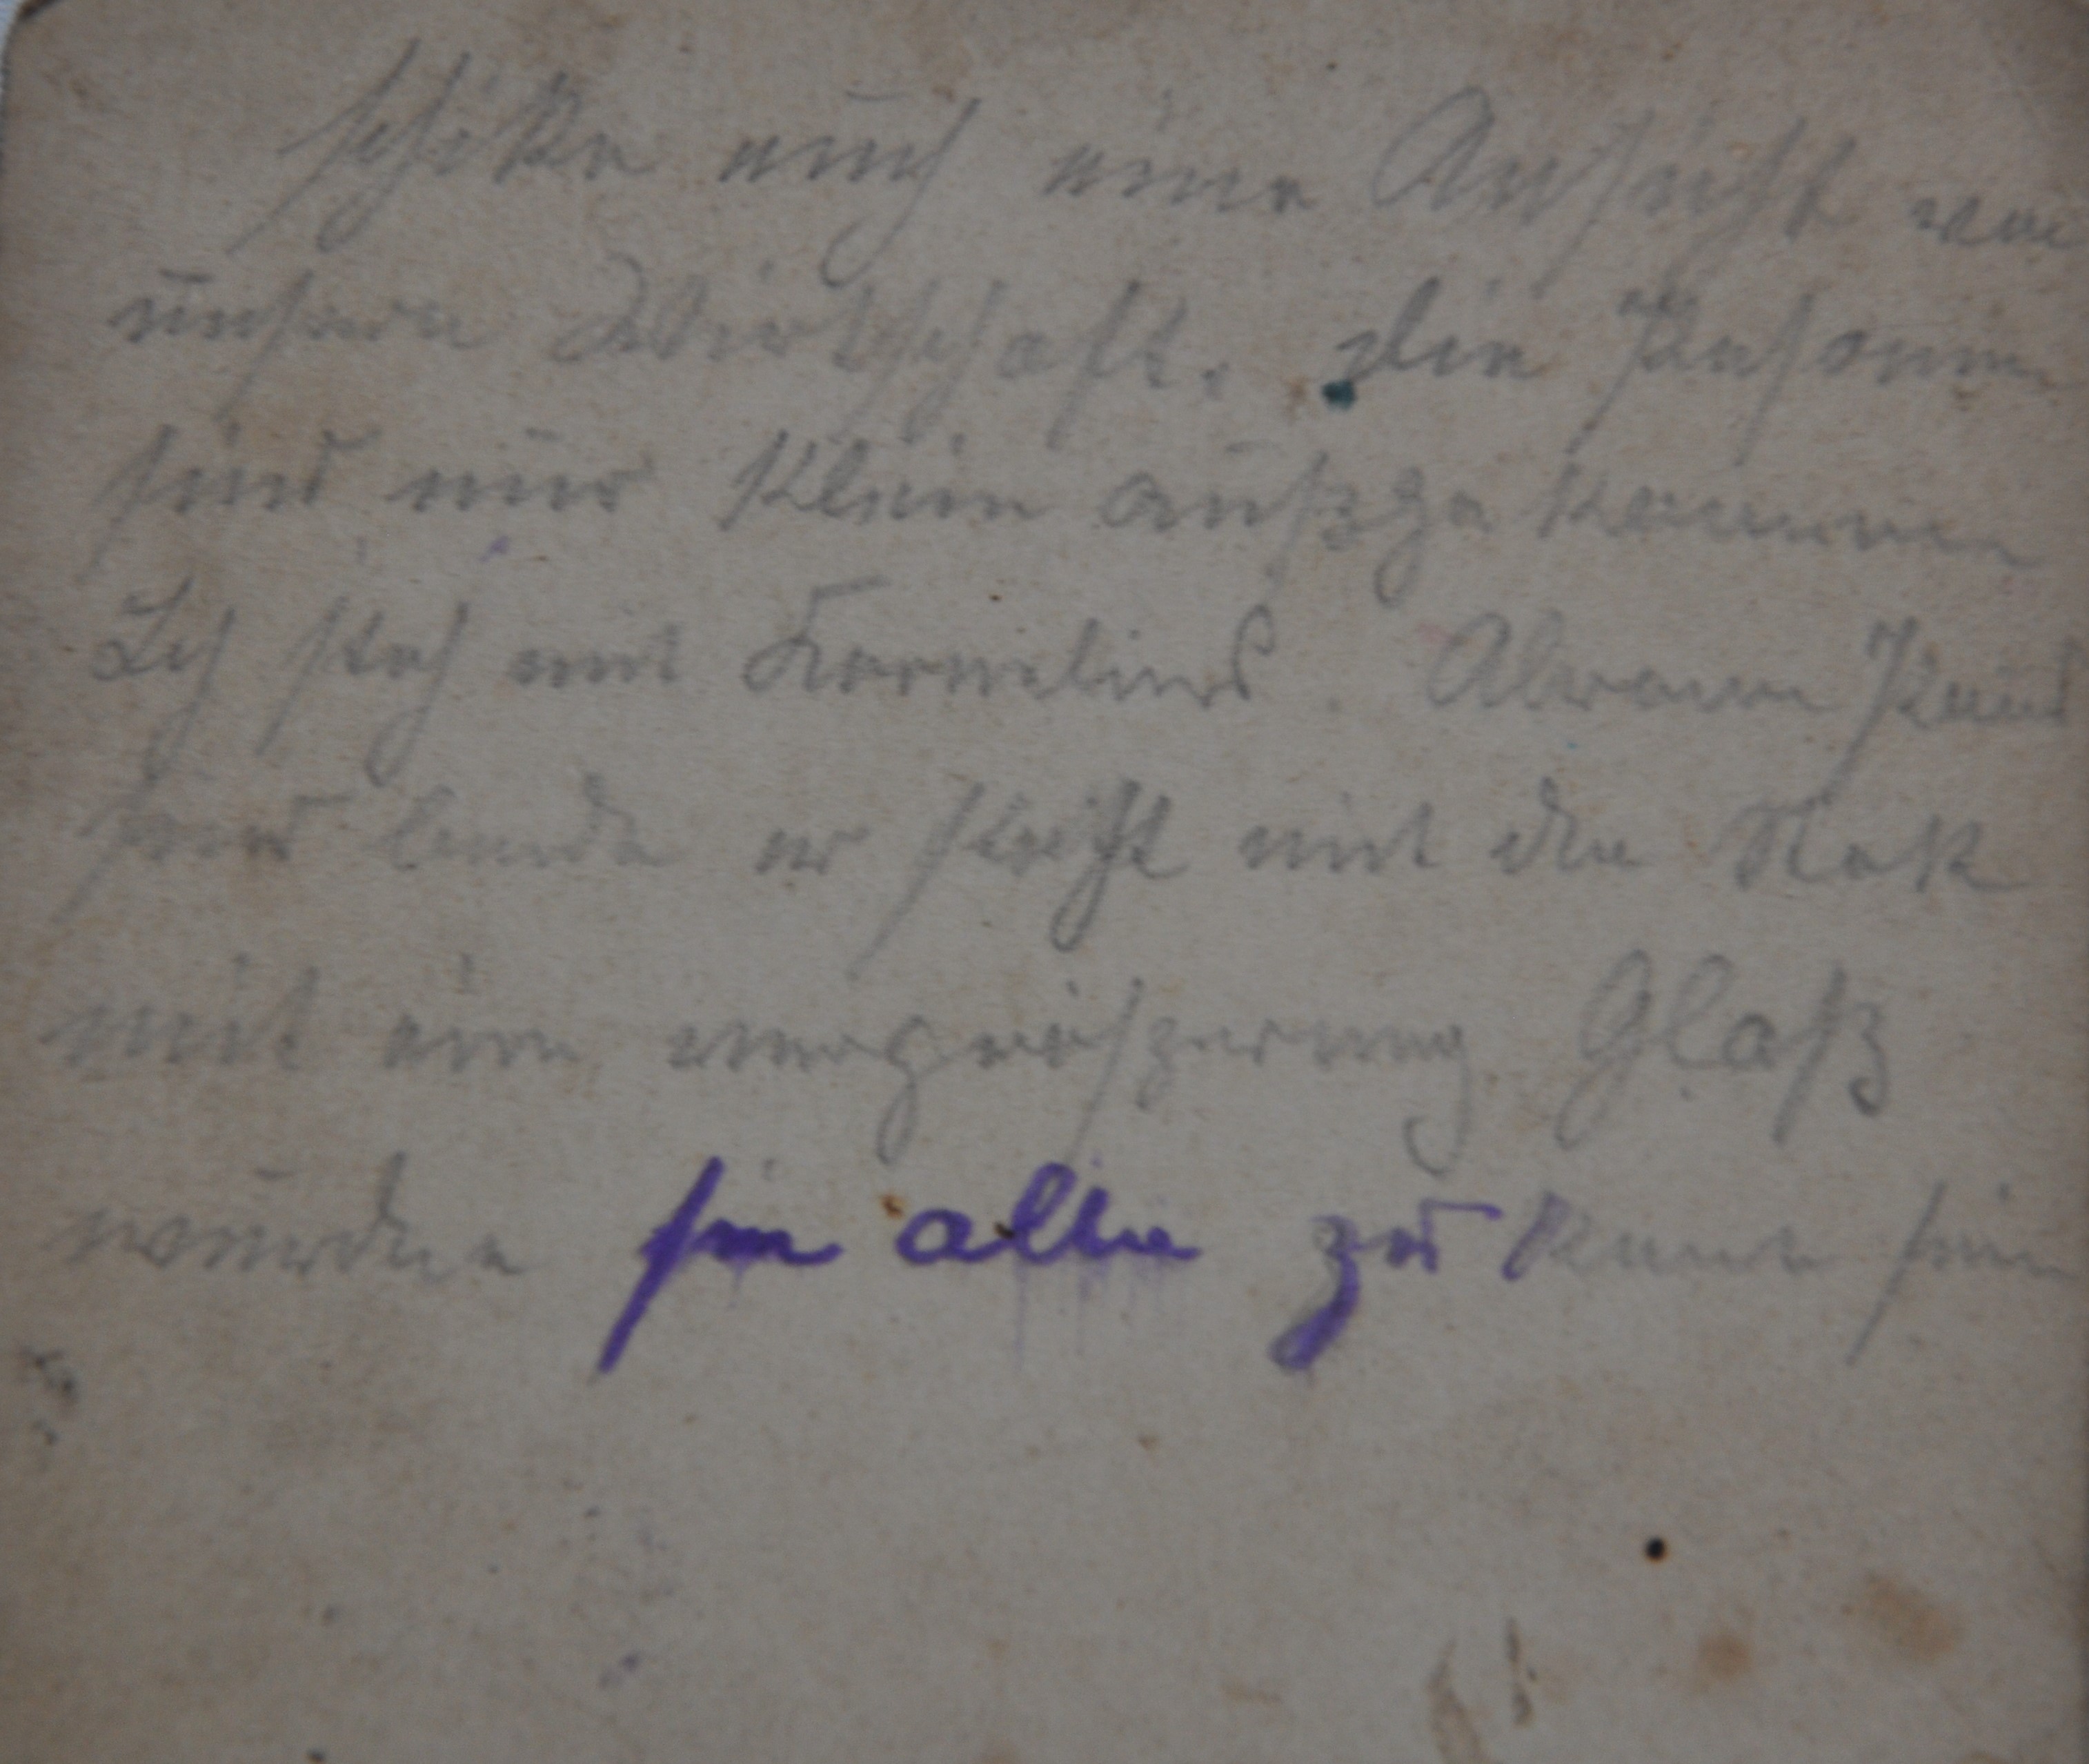 schike euch eine Ansicht von
unsere Wirtschaft. Die Personen
sind nur klein außgekommen
Ich steh mit Kornelius. Abram
beide er steht mit den Rok
mit eine vergrößerung Glaß
würden sie alle zu kent sein